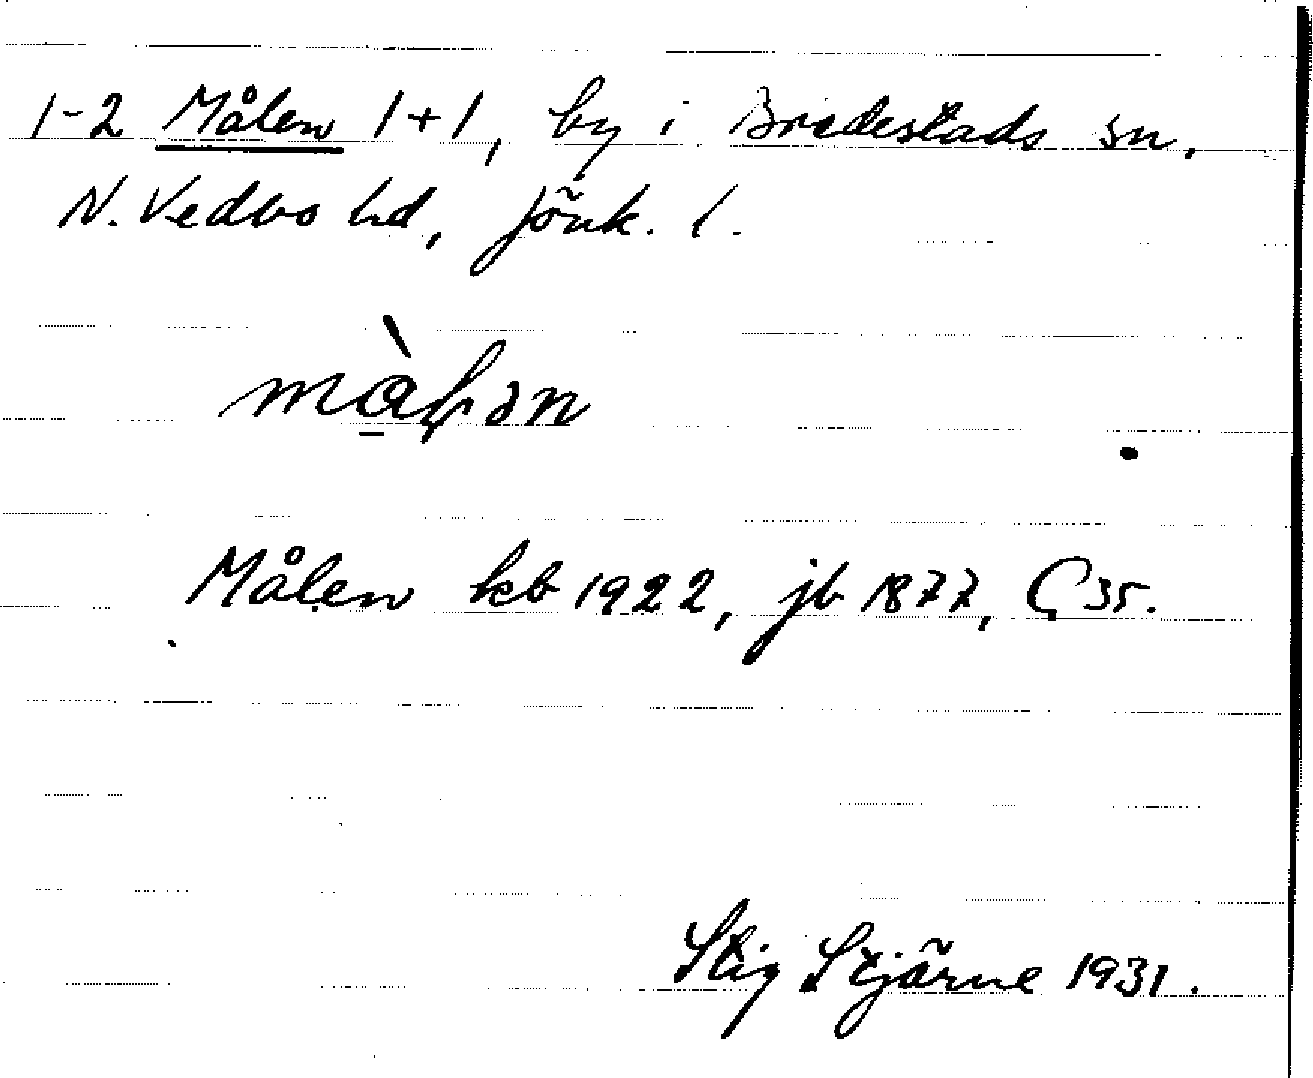 1-2 Målen 1+1, by i Bredestads sn,
N. Vedbo hd, Jönk. l.
màłən
Målen kb 1922, jb 1877, Ç 35.
Stig Stjärne 1931.